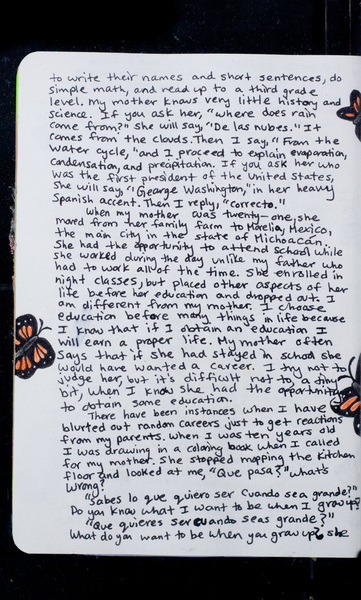 to write their names and short sentences, do
simple math, and read up to a third grade
level. My mother knows very little history and
science. If you ask her, "where does rain
come from?" she will say, "De las nubes." It
comes from the clouds. Then I say, "From the
water cycle," and I proceed to explain evaporation,
condensation, and precipitation. If you ask her who
was the first president of the United States,
she will say, "George Washington," in her heavy
Spanish accent. Then I reply, "correcto."
When my mother was twenty-one, she
moved from her family farm to Morelia, Mexico,
the main city in the state of Michoacán.
She had the opportunity to attend school while
she worked during the day unlike my father who
had to work all of the time. She enrolled in
night classes, but placed other aspects of her
life before her education and dropped out. I
am different from my mother. I choose
education before many things in life because
I know that if I obtain an education I
will earn a proper life. My mother often
says that if she had stayed in school she
would have wanted a career. I try not to
judge her, but it's difficult not to, a tiny
bit, when I know she had the opportunity
to obtain some education.
There have been instances when I have
blurted out random careers just to get reactions
from my parents. When I was ten years old
I was drawing in a coloring book when I called
for my mother. She stopped mopping the kitchen
floor and looked at me, "Que pasa?" what's
wrong?
"Sabes lo que quiero ser cuando sea grande?"
Do you know what I want to be when I grow up?
"Que quieres ser cuando seas grande?"
What do you want to be when you grow up? she